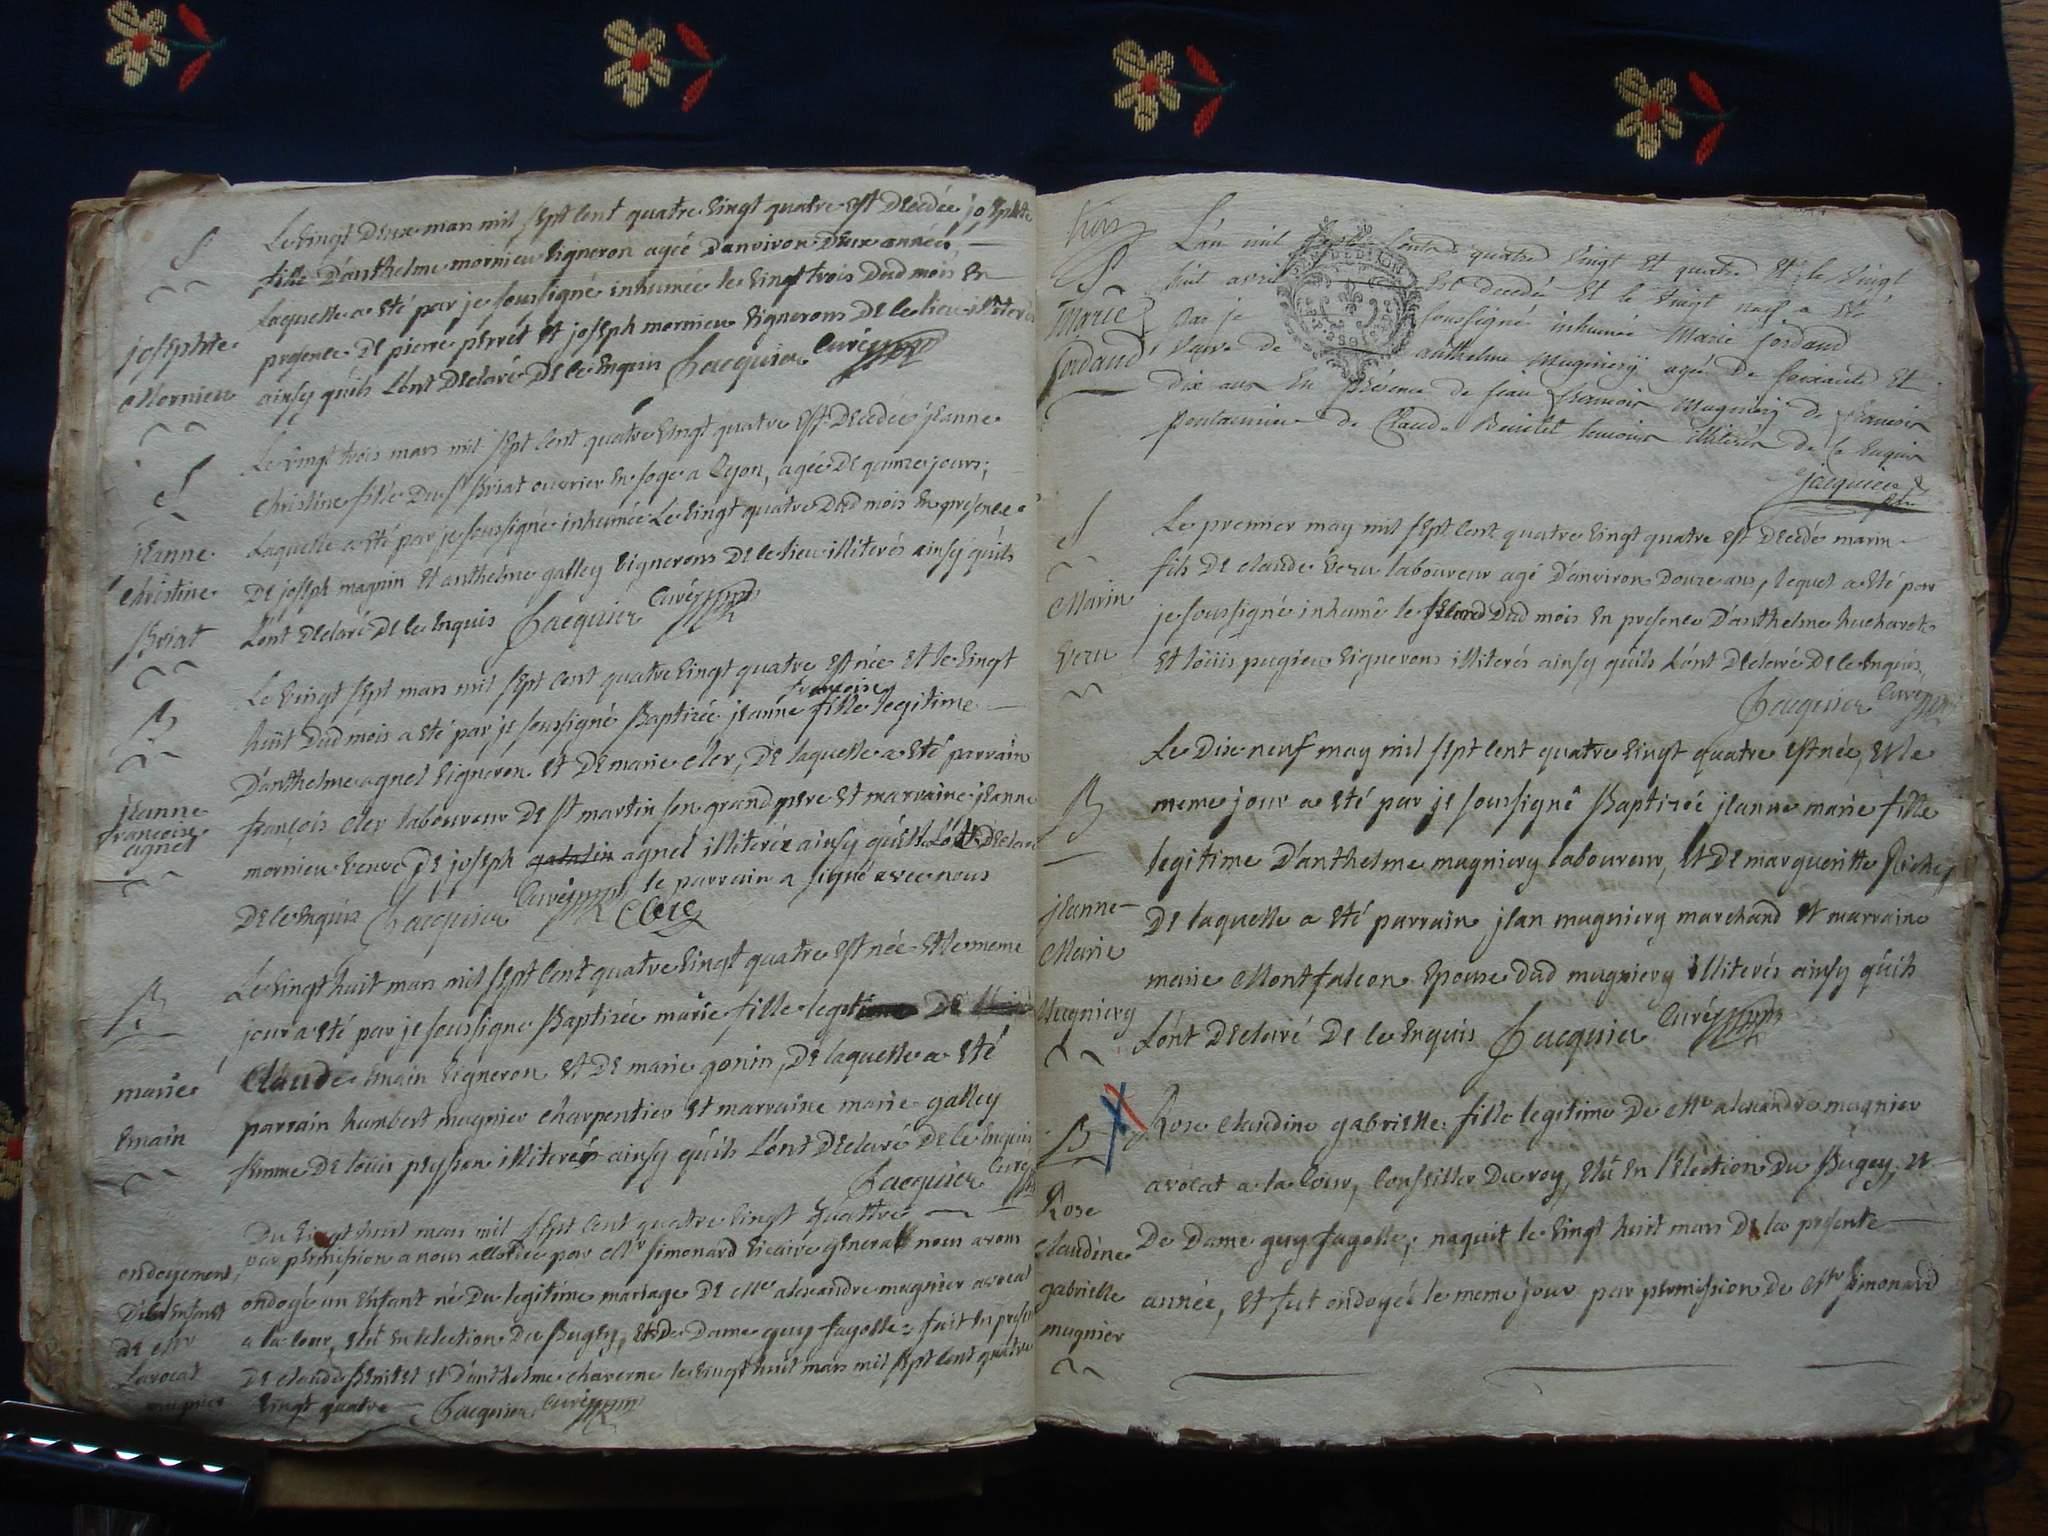 Le vingt deux mars mil sept cent quatre vingt quatre est decedée josephte
fille d'anthelme mornieu vigneron agée d'anviron deux années
laquelle a eté par je soussigné inhumée le vingt trois dud mois en
presence de pierre perret et joseph mornieu vignerons de ce lieu
ainsy quils l'ont declaré de ce enquis Jacquier curé
S
josephte
Mornieu
Le vingt trois mars mil sept cent quatre vingt quatre est decedée jeanne
christine fille du Sr Briat ouvrier en soge a Lyon, agée de quinze jours;
laquelle a eté par je soussigné inhumée le vingt quatre dud mois en presence
de joseph magnin et anthelme galley vignerons de ce lieu illiterés ainsy quils
l'ont declaré de ce enquis Jacquier curé
S
jeanne
christine
Briat
Le vingt sept mars mil sept cent quatre vingt quatre est née et le vingt
françoise
huit dud mois a eté par je soussigné Baptizée jeanne fille legitime
d'anthelme agnel vigneron et de marie cler, de laquelle a eté parrain
françois cler laboureur de St martin son grand pere et marraine jeanne
mornieu veuve de joseph agnel illiterée ainsy quelle l'a declaré
le parrain a signé avec nous
de ce enquis Jacquier curé Clerc
B
jeanne
françoise
agnel
Le vingt huit mars mil sept cent quatre vingt quatre est née et le meme
jour a eté par je soussigné Baptizée marie fille legitime de
Claude emain vigneron et de marie gonin, de laquelle a eté
parrain humbert magnier charpentier et marraine marie galley
femme de loüis peysson illiterés ainsy quils l'ont declaré de ce enquis
Jacquier curé
B
marie
emain
Du vingt huit mars mil sept cent quatre vingt quattre
par permission a nous allouée par Mr simonard vicaire general nous avons
ondoyé un enfant né du legitime mariage de Mr alexandre mugnier avocat
a la cour, elu en l'election du Bugey, et de Dame guy fagolle; fait en presence
de claude Benitet et d'anthelme chaverne le vingt huit mars mil sept cent quatre
vingt quatre Jacquier curé
ondoyement
de l'enfant
de Mr
L'avocat
mugnier
L'an mil sept cents quatre vingt et quatre et le vingt
huit avril est decedée et le vingt neuf a eté
par je soussigné inhumée Marie Jordand
veuve de anthelme Mugniery agée de soixante et
dix ans en présence de jean françois Mugniery de françois
de Claude Benitet temoins illiterés de ce enquis
Jacquier
S
Marie
Jordand
Le premier may mil sept cent quatre vingt quatre est decedé marin
fils de claude veru laboureur agé d'anviron douze ans, lequel a eté par
je soussigné inhumé le second dud mois en presence d'anthelme hucharet
et loüis pugieu vignerons illiterés ainsy quils l'ont declaré de ce enquis,
Jacquier curé
S
Marin
Veru
Le dix neuf may mil sept cent quatre vingt quatre est née, et le
meme jour a eté par je soussigné Baptizée jeanne marie fille
legitime d'anthelme mugniery laboureur, et de margueritte Richey
de laquelle a eté parrain jean mugniery marchand et marraine
marie Montfalcon epouse dud mugniery illiterés ainsy quils
l'ont declaré de ce enquis Jacquier curé
B
jeanne
Marie
Mugniery
Rose claudine gabrielle fille legitime de Mr alexandre mugnier
avocat a la cour, conseiller du roy, elû en l'election du Bugey, et
de Dame guy fagolle; naquit le vingt huit mars de la presente
année, et fut ondoyée le meme jour par permission de Mr simonard
B
Rose
claudine
gabrielle
mugnier